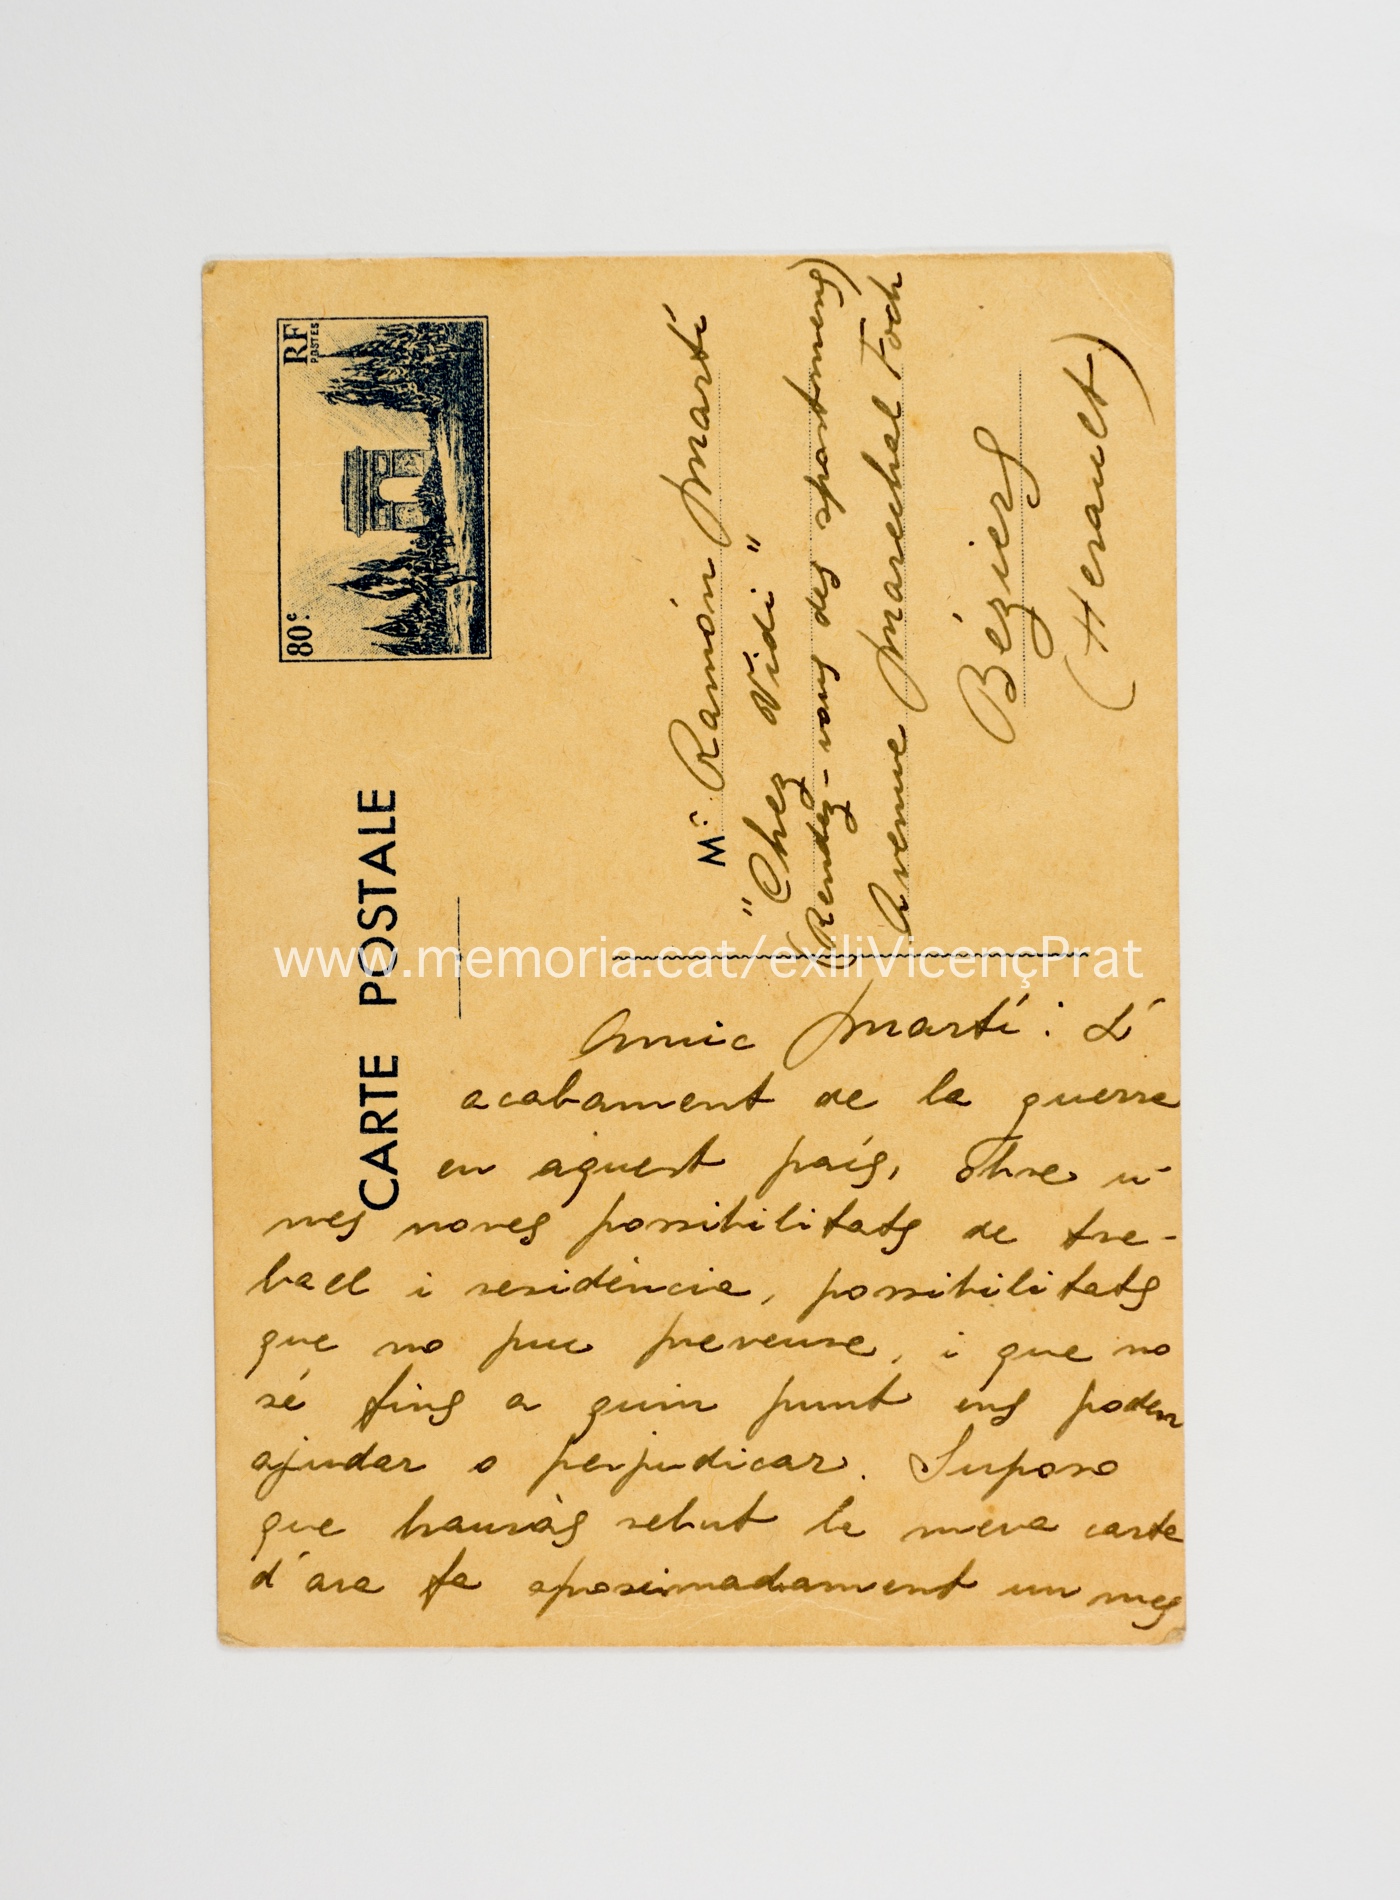 RF
POSTES
80c.
CARTE POSTALE
Mr. Ramón Martí
"Chez Vidi"
(Rendez-vous des sportmens)
Avenue Marechal Foch
Béziers
(Herault)
www.memoria.cat/exiliVicençPrat
Amic Martí: L'
acabament de la guerra
en aquest país, obre u-
nes noves possibilitats de tre-
ball i residència, possibilitats
que no puc preveure, i que no
sé fins a quin punt ens poden
ajudar o perjudicar. Suposo
que hauràs rebut la meva carta
d'ara fa aproximadament un mes